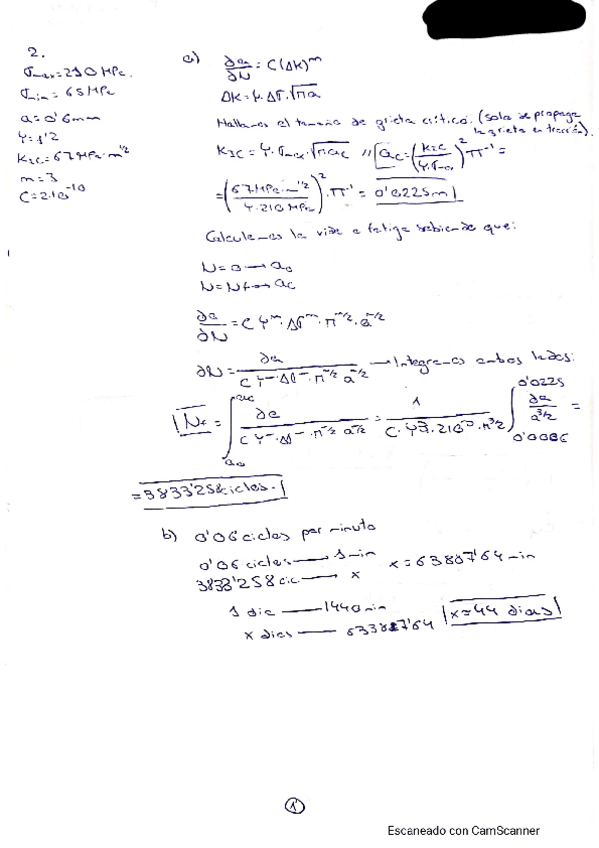 2.
σmax=210 MPa.
σmin = 65 MPa
a=0'6mm
Y=1'2
KIC=67 MPa·m^1/2
m=3
C=2·10^-10
a) ∂a/∂N = C(ΔK)^m
ΔK=Y·Δσ·√πa
Hallamos el tamaño de grieta crítico. (solo se propaga
la grieta en tracción).
KIC=Y·σmax√πac // ac=(KIC/Y·σmax)^2 π^-1 =
=(67MPa·m^1/2/Y·210MPa)^2·π^-1 = 0'0225m
Calculamos la vida a fatiga sabiendo que:
N=0→a0
N=Nf→ac
∂a/∂N=C Y^m·Δσ^m·π^m/2·a^m/2
∂N= ∂a/C Y^m·Δσ^m·π^m/2 a^m/2 → Integramos ambos lados:
Nf = ∫a0^ac ∂a/C Y^m·Δσ^m·π^m/2 a^m/2 = 1/C·Y^3·210^3·π^3/2 ∫0'0006^0'0225 ∂a/a^3/2 =
=3833'258 ciclos.
b) 0'06 ciclos por minuto
0'06 ciclos → 1 min
3833'258 cic → x x=63887'64 min
1 dia — 1440 min
x dias — 63887'64 x=44 dias
1
Escaneado con CamScanner